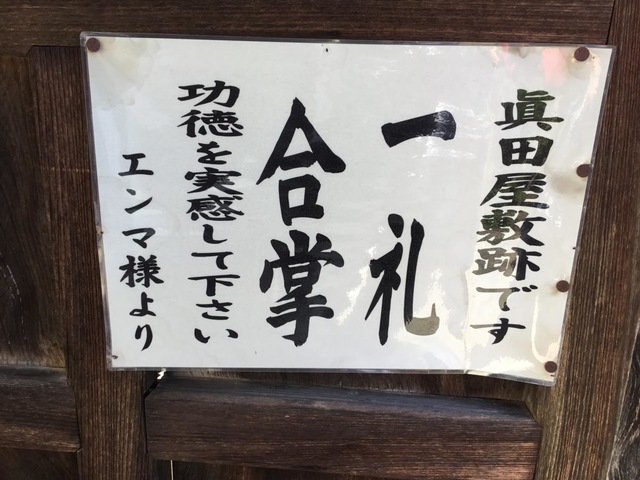 眞田屋敷跡です
一礼
合掌
功徳を実感して下さい
エンマ様より